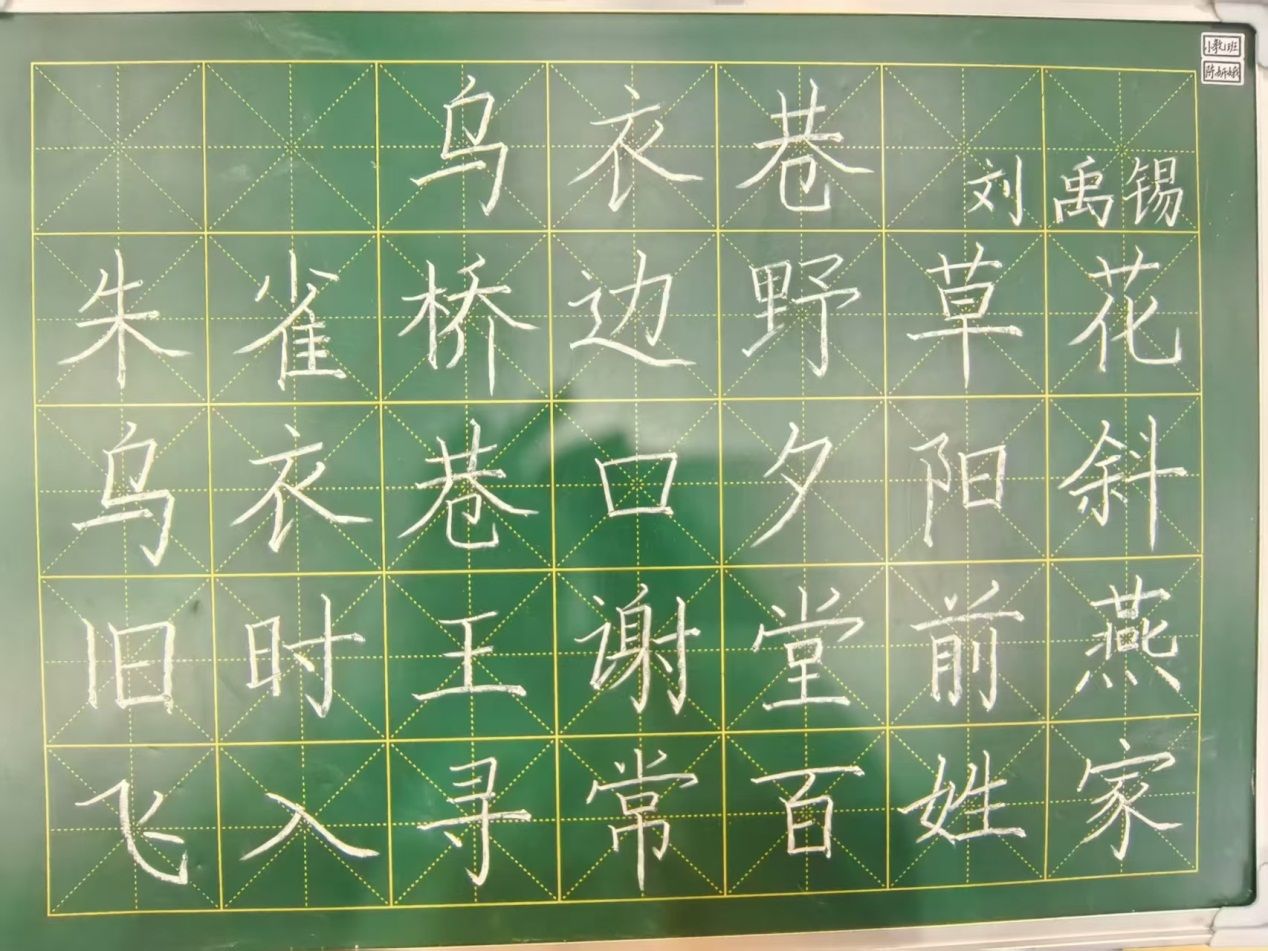 乌衣巷
刘禹锡
朱雀桥边野草花
乌衣巷口夕阳斜
旧时王谢堂前燕
飞入寻常百姓家
小教班